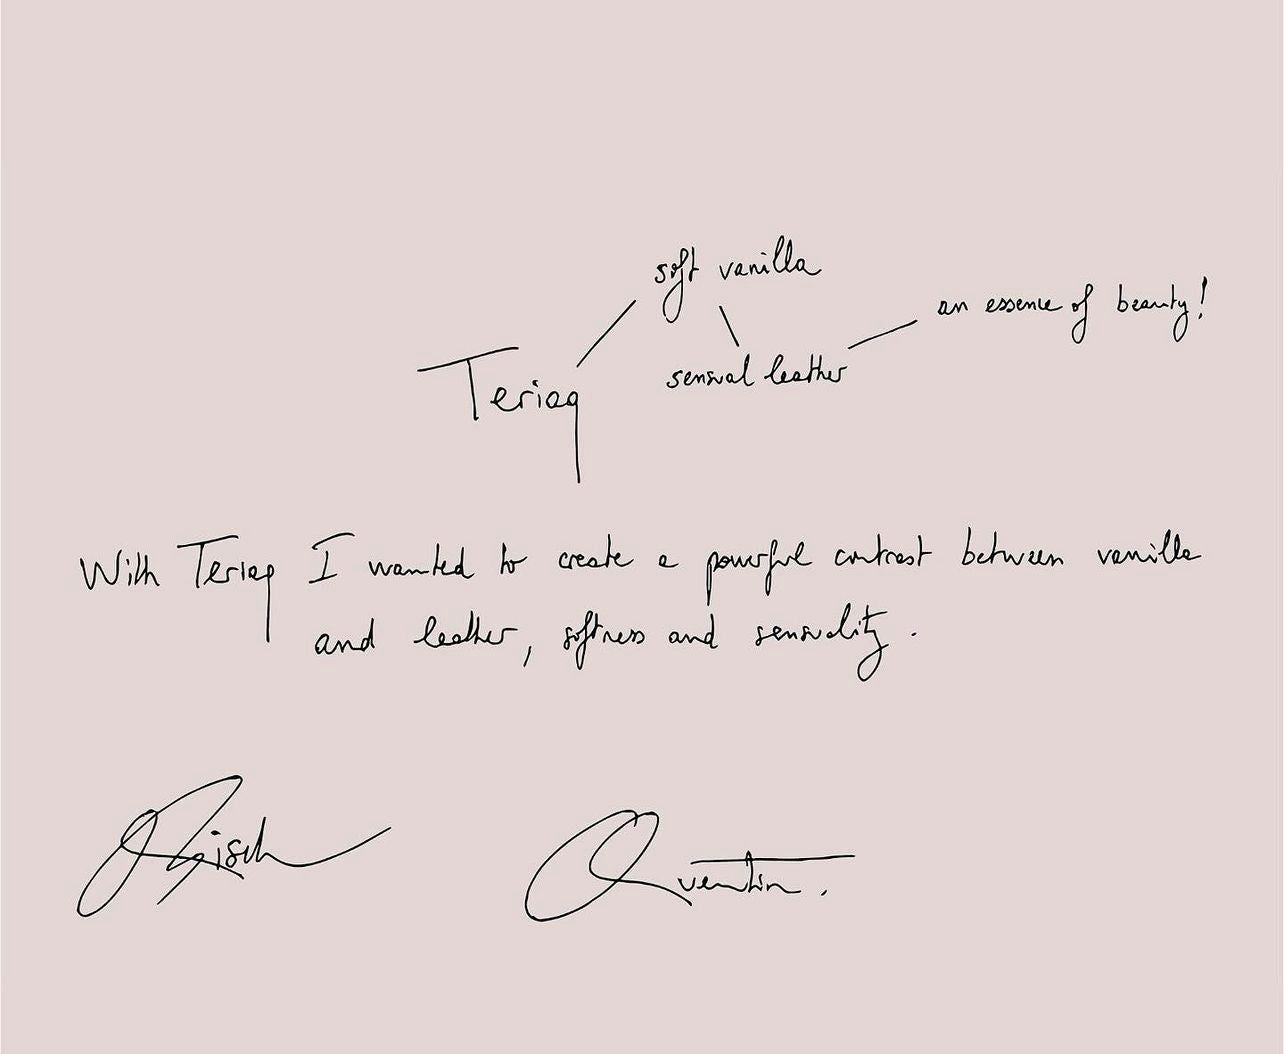 soft vanilla
an essence of beauty!
sensual leather
Teriaq
With Teriaq I wanted to create a powerful contrast between vanilla
and leather, softness and sensuality.
Quentin.